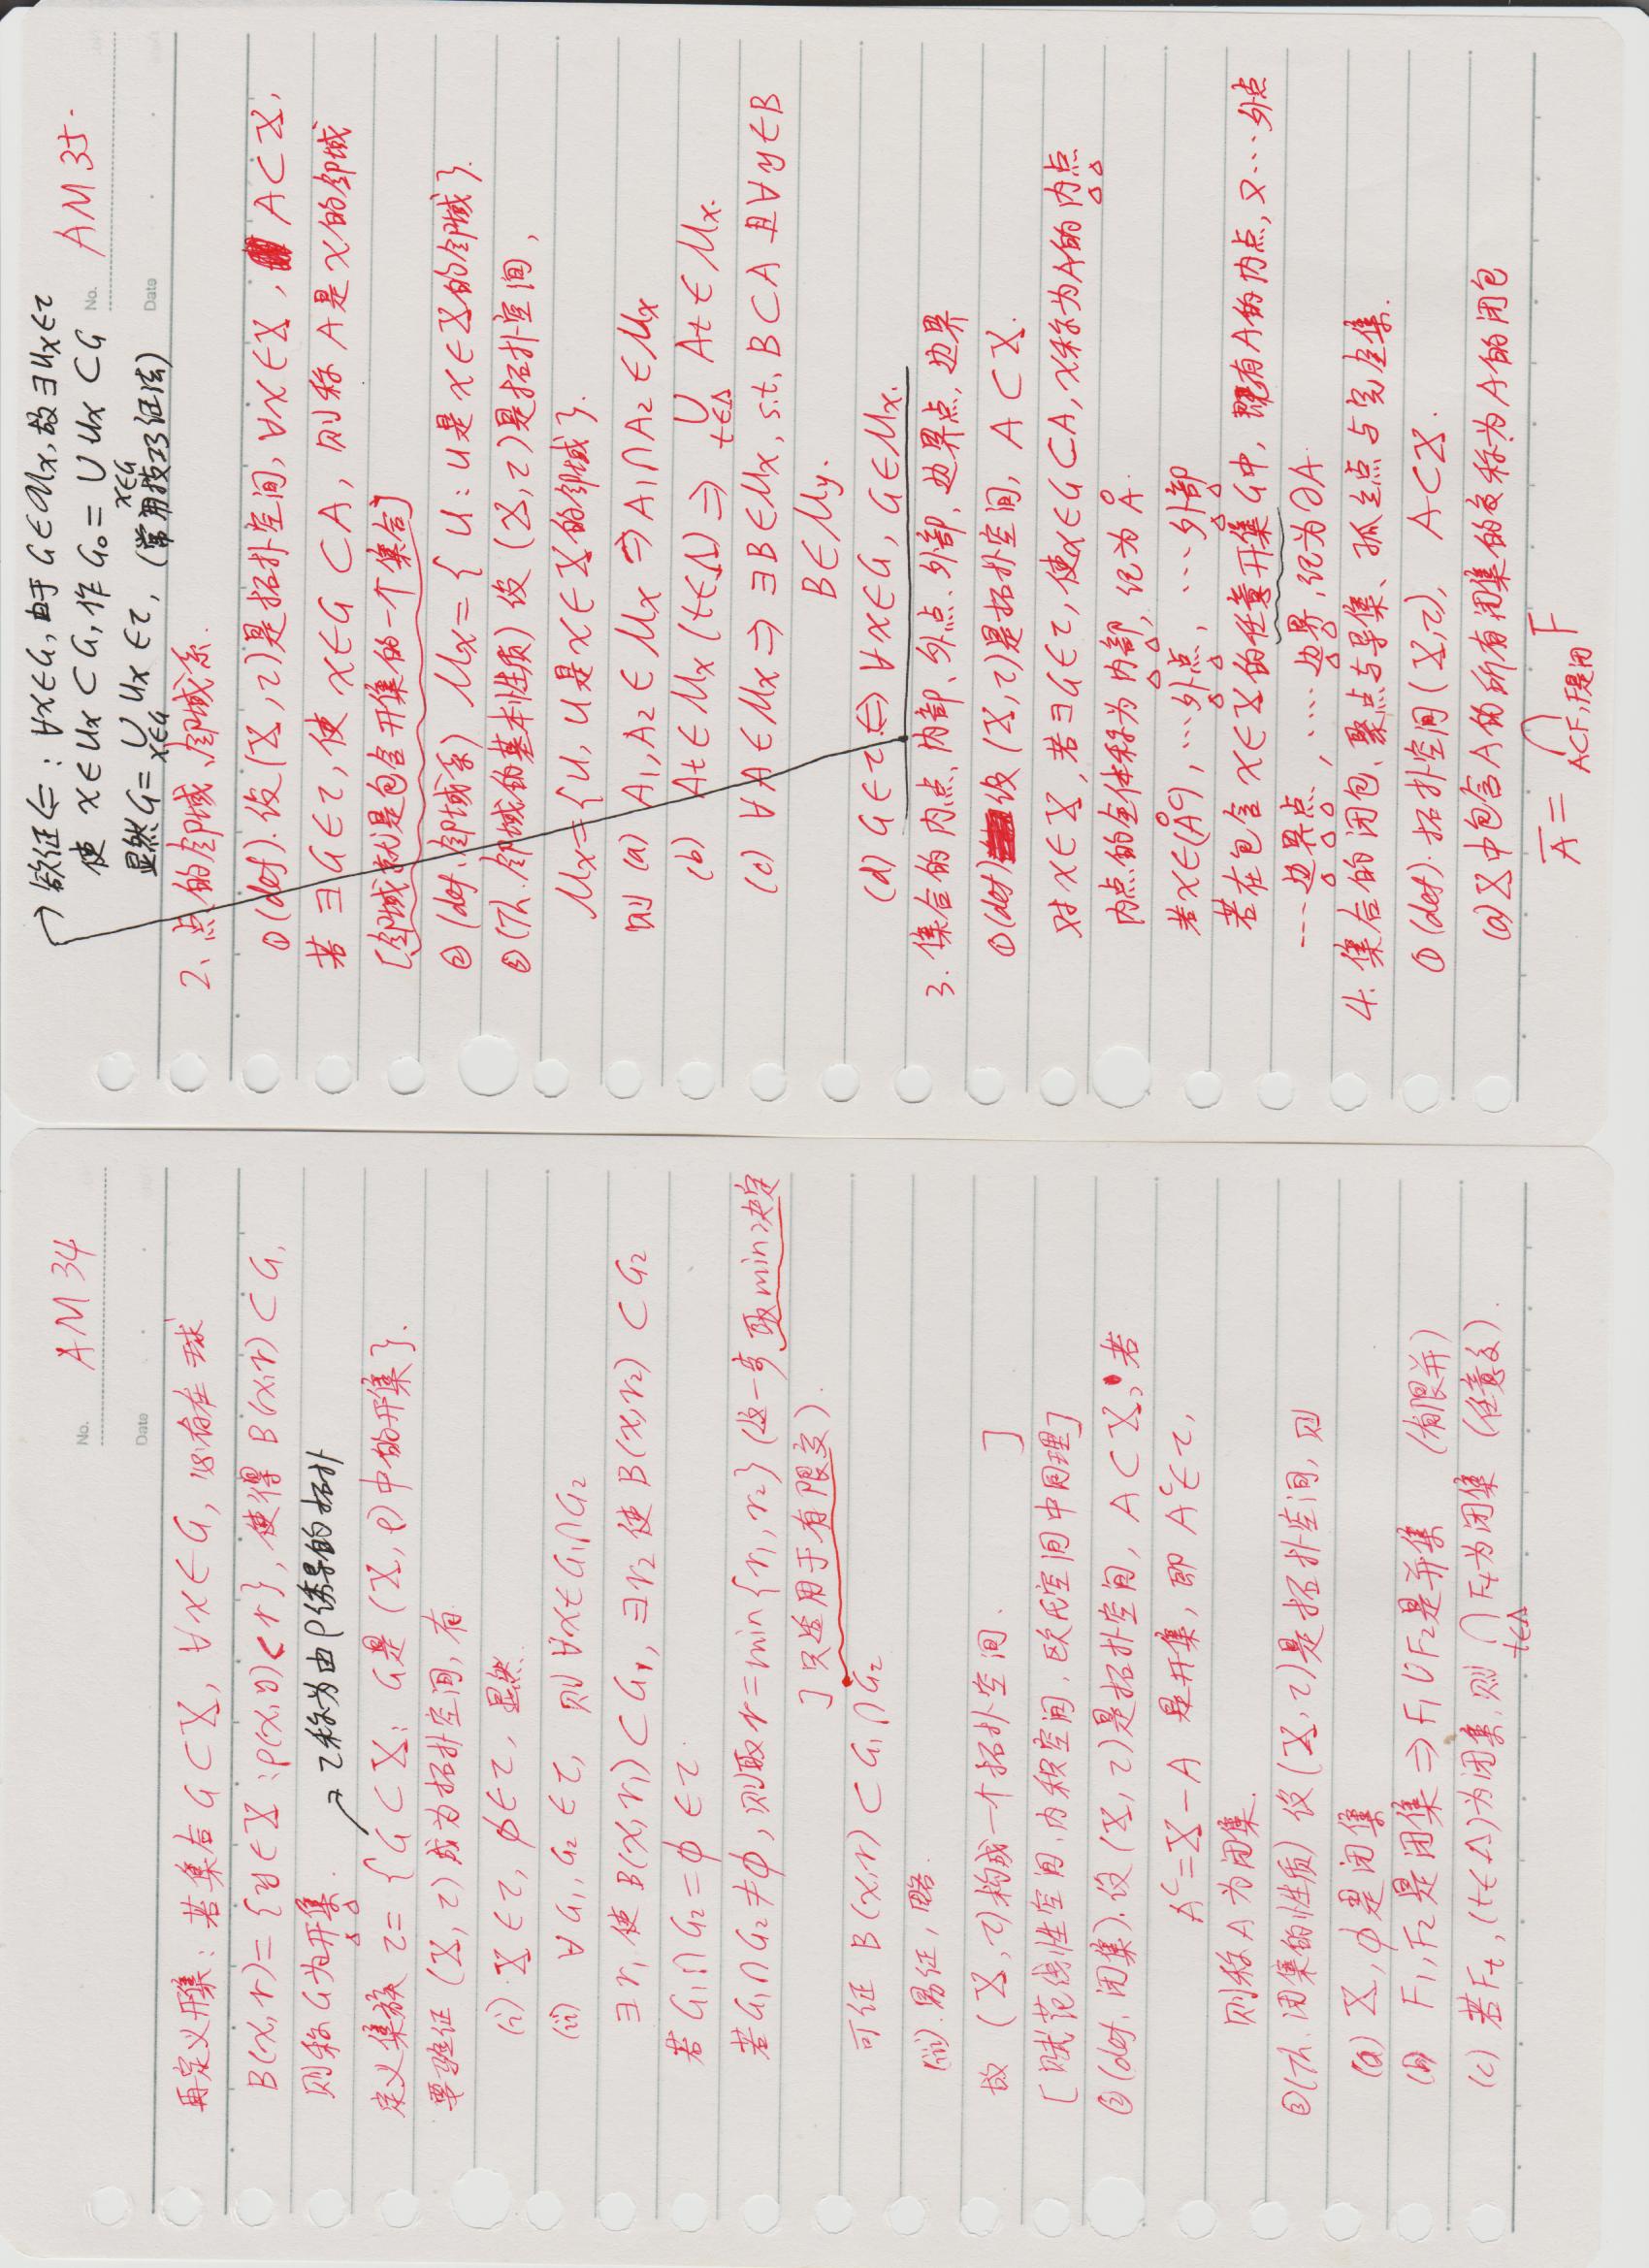 No. AM 34
Date
再定义开集：若集合 G⊂X, ∀x∈G, 必存在球
B(x,r)={y∈X:ρ(x,y)<r}, 使得 B(x,r)⊂G,
则称G为开集.
→ τ称为由ρ诱导的拓扑
定义集族 τ={G⊂X: G是(X,ρ)中的开集}.
要验证 (X,τ)成为拓扑空间, 有
(i) X∈τ, φ∈τ, 显然.
(ii) ∀G1,G2∈τ, 则∀x∈G1∩G2
∃r1使B(x,r1)⊂G1, ∃r2使B(x,r2)⊂G2
若G1∩G2=φ∈τ.
若G1∩G2≠φ, 则取r=min{r1,r2} (这一步取min决定
了只适用于有限交).
可证 B(x,r)⊂G1∩G2
(iii). 易证, 略.
故 (X,τ)构成一个拓扑空间. ]
[赋范线性空间、内积空间、欧氏空间中同理]
②(def. 闭集). 设(X,τ)是拓扑空间, A⊂X, 若
A^c=X-A 是开集, 即 A^c∈τ,
则称A为闭集.
③(Th. 闭集的性质) 设(X,τ)是拓扑空间, 则
(a) X,φ是闭集
(b) F1,F2是闭集⇒F1∪F2是并集 (有限并)
(c) 若Ft,(t∈Λ)为闭集,则 ∩ Ft为闭集 (任意交).
t∈Λ
→ 欲证⇐: ∀x∈G, 由于G∈Mx, 故∃Ux∈τ
使 x∈Ux⊂G, 作 G0=∪Ux⊂G
x∈G
显然G=∪Ux∈τ, (常用技巧证法)
x∈G
No. AM 35.
Date
2、点的邻域、邻域系.
①(def). 设(X,τ)是拓扑空间, ∀x∈X, A⊂X,
若∃G∈τ, 使 x∈G⊂A, 则称A是x的邻域
[邻域就是包含开集的一个集合]
②(def. 邻域系) Mx={U:U是x∈X的邻域}.
③(Th. 邻域的基本性质) 设(X,τ)是拓扑空间,
Mx={U, U是x∈X的邻域}.
则 (a) A1,A2∈Mx⇒A1∩A2∈Mx
(b) At∈Mx(t∈Λ)⇒ ∪ At∈Mx.
t∈Λ
(c) ∀A∈Mx⇒∃B∈Mx, s.t. B⊂A 且∀y∈B
B∈My.
(d) G∈τ⇔∀x∈G, G∈Mx.
3. 集合的内点、内部、外点、外部, 边界点, 边界
①(def) 设(X,τ)是拓扑空间, A⊂X.
对x∈X, 若∃G∈τ, 使x∈G⊂A, x称为A的内点
内点的全体称为内部, 记为Å.
若x∈(Å^c), …外点, …外部
若在包含x∈X的任意开集G中, 既有A的内点, 又…外点
…边界点, ….边界, 记为∂A.
4. 集合的闭包、聚点与导集、孤立点与完全集.
①(def). 拓扑空间(X,τ), A⊂X.
(a) X中包含A的所有闭集的交称为A的闭包
A̅= ∩ F
A⊂F, F是闭